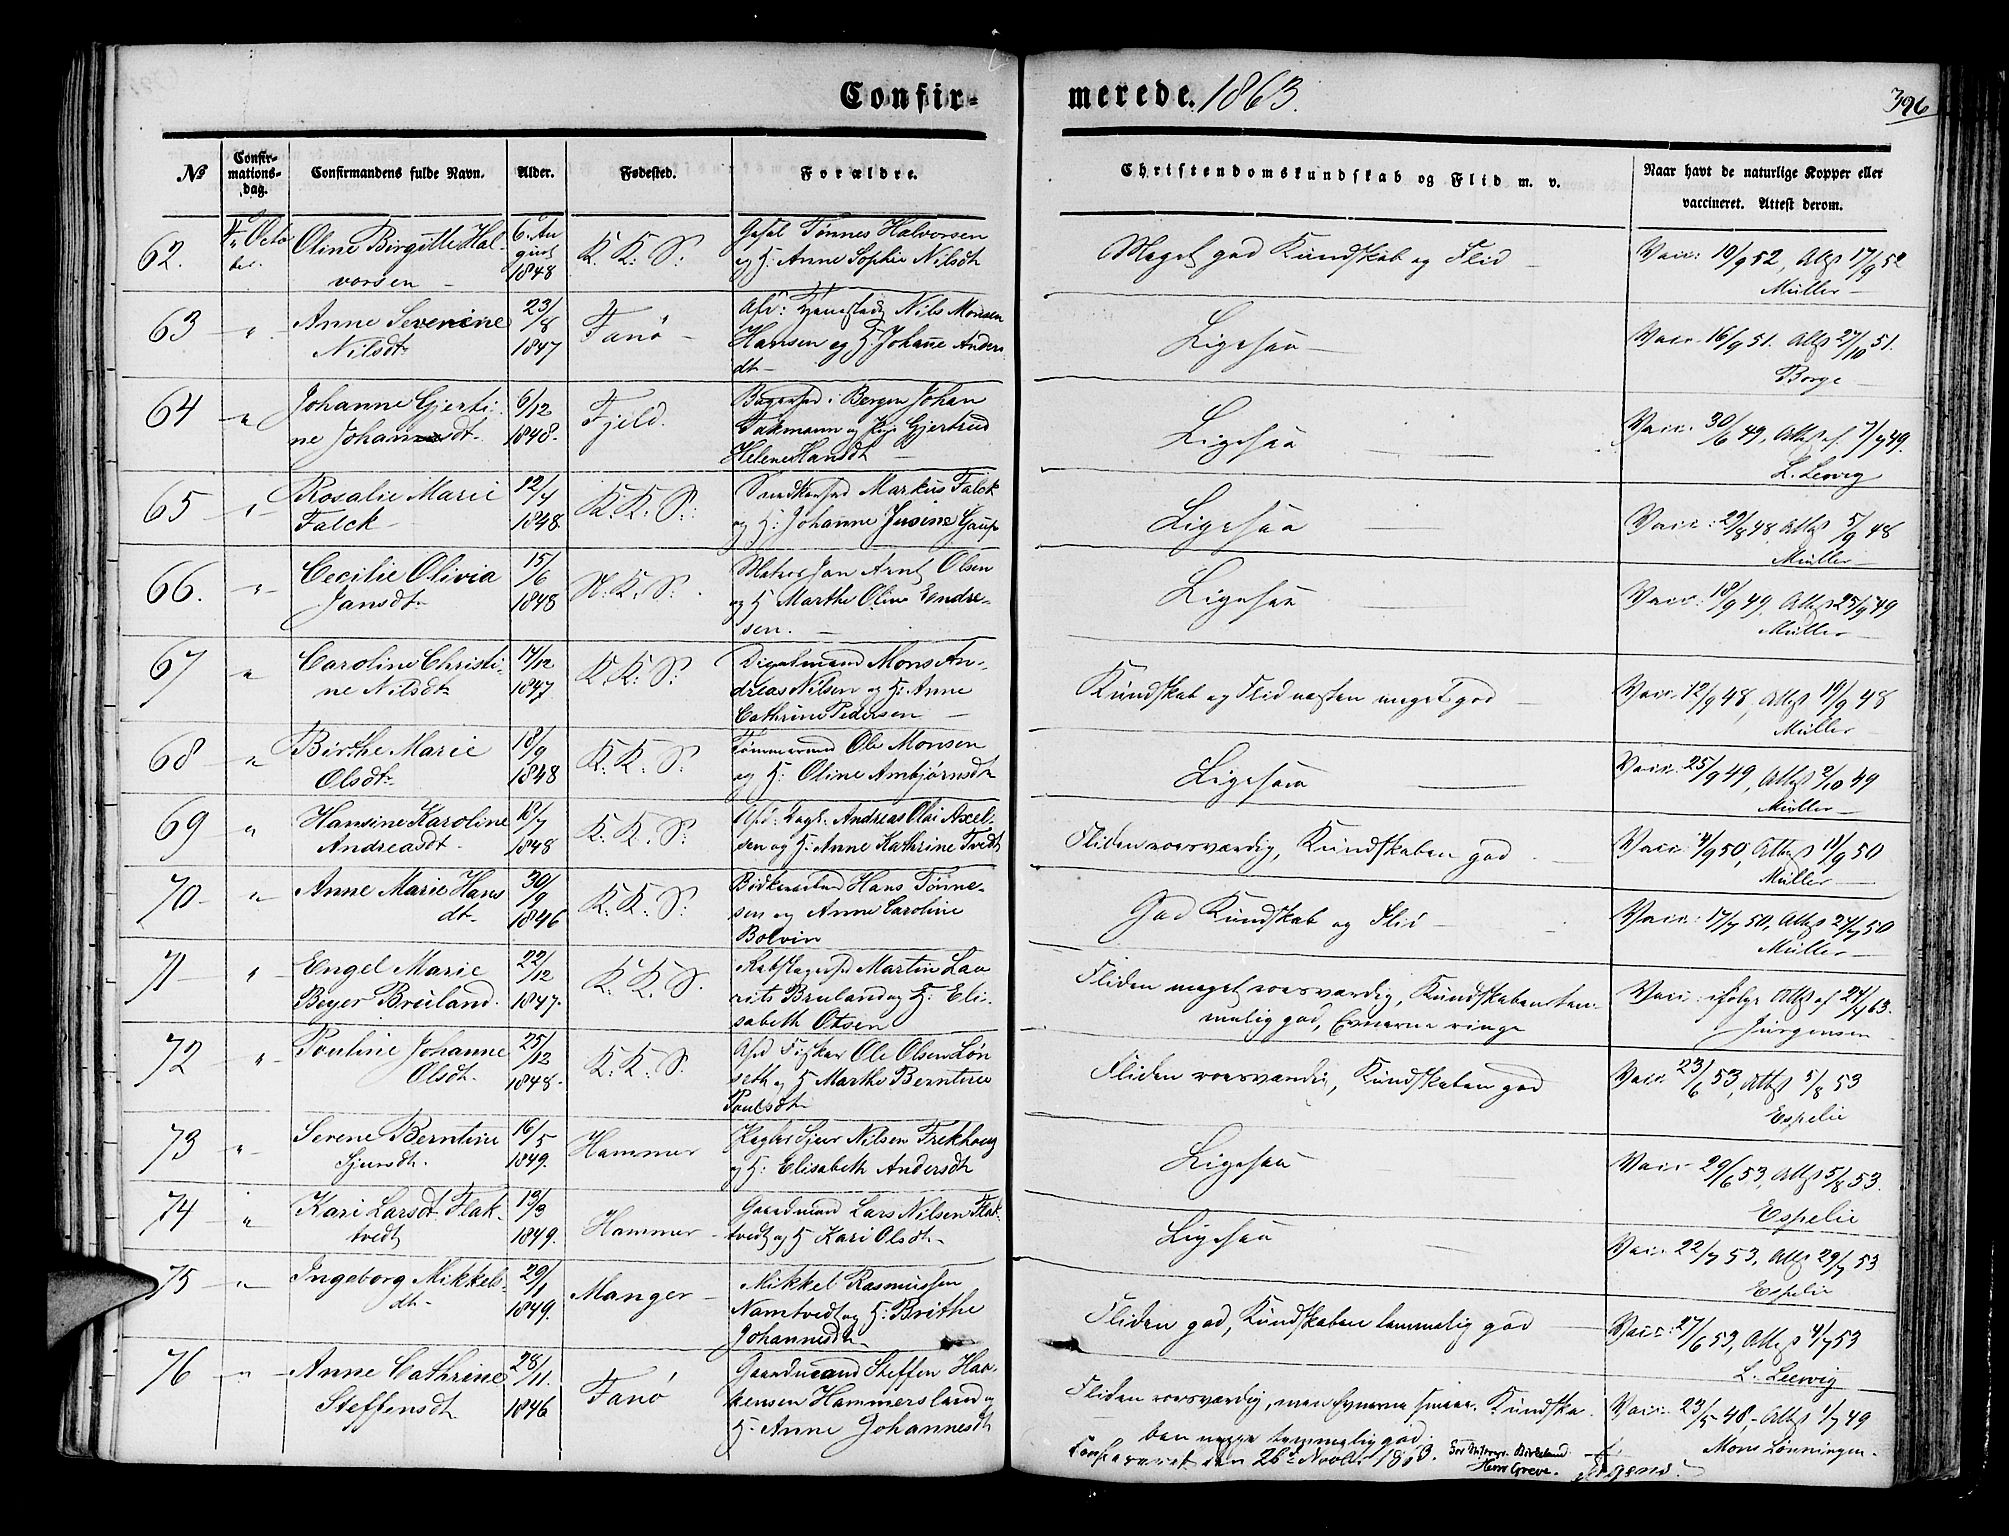 Confir-
merede. 1863.
396
No
Confir-
mations-
dag.
Confirmandens fulde Navn.
Alder.
Fødested.
Forældre.
Christendomskundskab og Flid m. v.
Naar havt de naturlige Kopper eller
vaccineret. Attest derom.
62.
4de Octo
ber.
Oline Birgitte Hal
vorsen
6. Au
gust
1848
K. K. S.
Tønnes Halvorsen
og H: Anne Sophie Nilsdt
Meget god Kundskab og Flid
Vacc: 10/9 52, Attst 17/9 52
Müller
63
"
Anne Severine
Nilsdt
23/8
1847
Fanø
Afd: Nils Monsen
Hansen og H. Johane Anders
dt
Ligesaa
Vacc. 16/9 51. Attst 27/10 51.
Borge
64
"
Johanne Gjerti
ne Johannsdt.
6/12
1848.
Fjeld.
i Bergen Johan
Takmann og Gjertrud
Helene Hansdt
Ligesaa
Vacc. 30/6 49, Attst af 7/7 49.
L. Lewig
65
"
Rosalie Marie
Falck
12/4
1848
K. K. S.
Snedkersvd Markus Falck
og H: Johanne Jusine Gaup
Ligesaa
Vacc: 29/8 48 Attst 5/9 48
Müller
66.
"
Cecilie Olivia
Jansdt
15/6
1848
N. K. S.
Matros Jan Arnt Olsen
og H Marthe Oline Endre-
sen.
Ligesaa
Vacc: 18/9 49. Attst 25/9 49
Müller
67
"
Caroline Christi-
ne Nilsdt
14/12
1847
K. K. S.
Mons An-
dreas Nilsen og H: Anne
Cathrine Pedersen
Kundskab og Flid næsten meget god
Vacc. 12/9 48, Attst 19/9 48
Müller
68
"
Birthe Marie
Olsdt
18/9
1848
K. K. S.
Tømmermand Ole Monsen
og H: Oline Ambjørnsdt
Ligesaa
Vacc. 25/9 49, Attst 2/10 49
Müller
69
"
Hansine Karoline
Andreasdt.
18/7
1848
K. K. S.
Afd: Dagk. Andreas Olai Axel-
sen og H: Anne Kathrine Tvedt
Fliden roesværdig, Kundskaben god
Vacc 4/9 50, Attst 11/9 50
Müller
70
"
Anne Marie Hans
dt
30/9
1846
K. K. S.
Bødkersvend Hans Tønne-
sen og Anne Caroline
Bolvin
God Kundskab og Flid
Vacc: 17/7 50, Attst 24/7 50
Müller
71
"
Engel Marie
Beyer Bruland.
22/12
1847.
K. K. S.
Rebslagersvd Martin Lau
rits Bruland og H: Eli-
sabeth Otsen
Fliden meget roesværdig, Kundskaben tem-
melig god, Evnerne ringe
Vacc: ifølge Attst af 24/4 63.
Jürgensen
72
"
Pouline Johanne
Olsdt.
25/12
1848.
K. K. S.
Afd Fisker Ole Olsen Løn
seth og H Marthe Berntine
Poulsdt
Fliden roesværdig, Kundskaben god
Vacc 23/6 53, Attst 5/8 53
Espelie
73
"
Serene Berntine
Sjursdt.
16/5
1849.
Hammer
Sjur Nilsen Frekhaug
og H: Elisabeth Andersdt
Ligesaa
Vacc 29/6 53, Attst 5/8 53.
Espelie
74
"
Kari Larsdt Flak-
tvedt
13/3
1849.
Hammer
Gaardmand Lars Nilsen Flak-
tvedt og H Kari Olsdt
Ligesaa
Vacc. 22/7 53, Attst 29/7 53
Espelie
75
"
Ingeborg Mikkels-
dt
29/1
1849.
Manger
Mikkel Rasmussen
Namtvedt og H: Brithe
Johannesdt
Fliden god, Kundskaben temmelig god
Vacc: 27/6 53, Attst 4/7 53
L. Leewig
76
"
Anne Cathrine
Steffensdt
28/11.
1846
Fanø
Gaardmand Steffen Haa-
kensen Hammersland og
H. Anne Johannesdt
Fliden roesværdig, men Evnerne smaa. Kundska-
ben neppe temmelig god.
Vacc. 23/5 48. Attst 1/7 49
Mons Lønningen.
den 26de Novbr 1863.
Herr Greve.